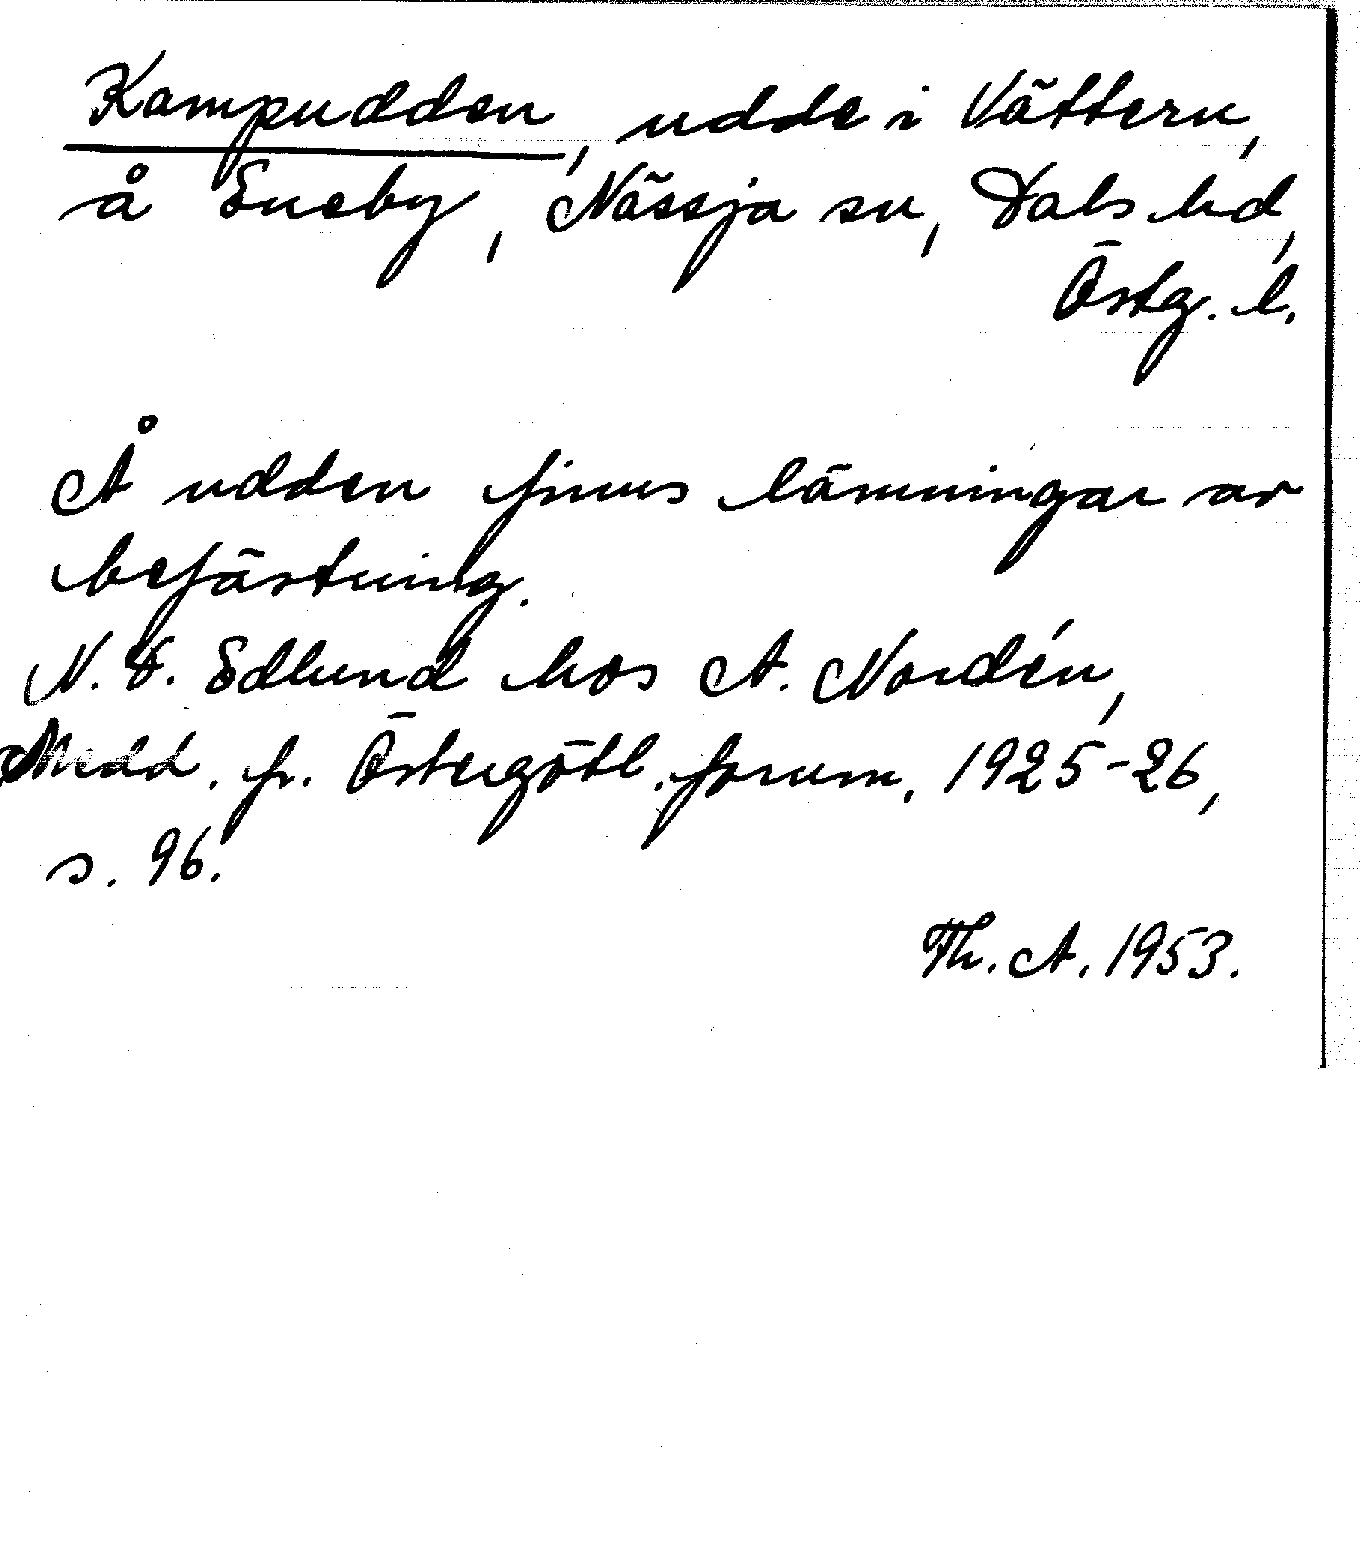 Kampudden, udde i Vättern,
å Eneby, Nässja sn, Dals hd,
Östg. l.
Å udden finns lämningar av
befästning.
N. E. Edlund hos A. Nordén,
Medd. fr. Östergötl. fornm. 1925-26,
s. 96.
Th. A. 1953.